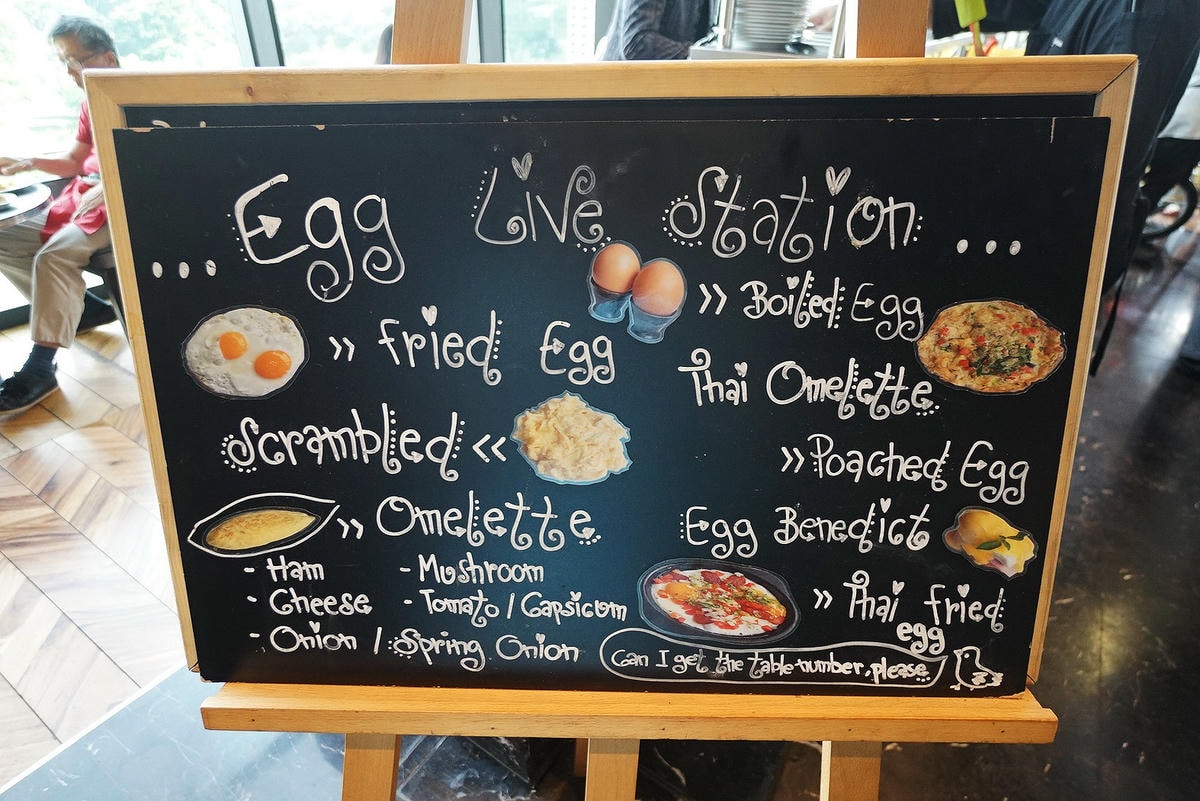 Egg Live Station
... ...
>> Fried Egg
Scrambled <<
>> Omelette
- Ham
- Mushroom
- Cheese
- Tomato / Capsicum
- Onion / Spring Onion
>> Boiled Egg
Thai Omelette
>> Poached Egg
Egg Benedict
>> Thai fried
egg
Can I get the table number, please